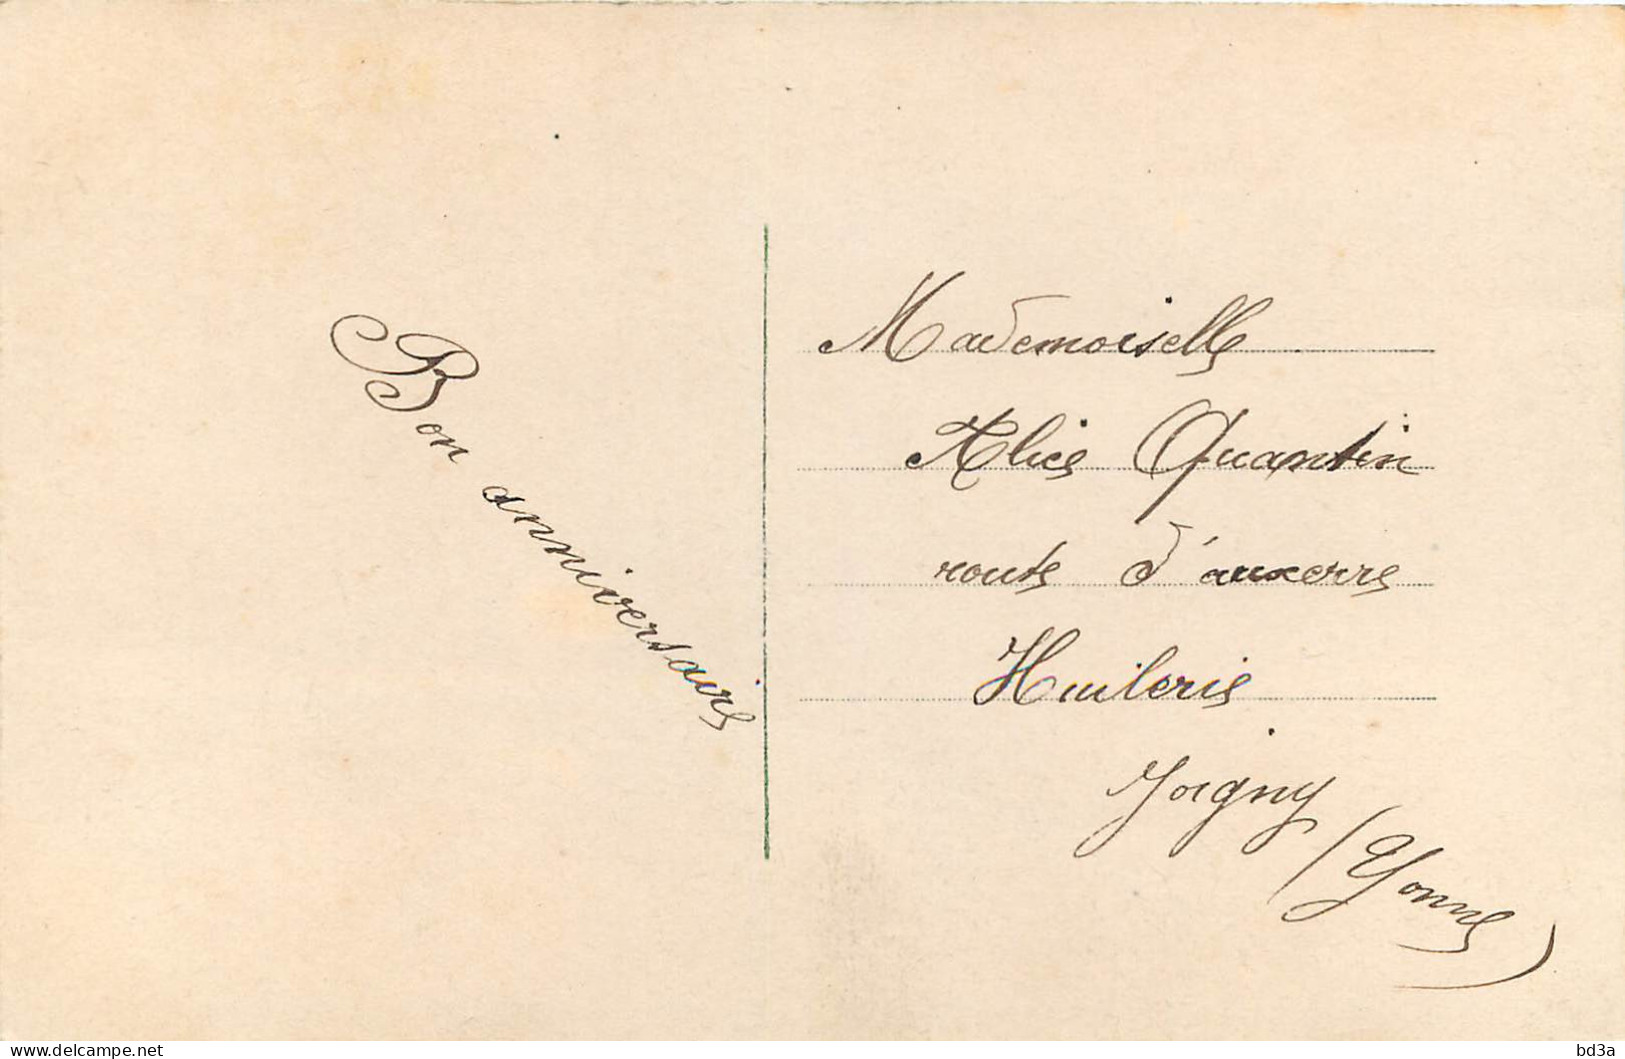 Bon anniversaire
Mademoiselle
Alice Quantin
route d'auxerre
Huilerie
Joigny
(Yonne)
www.delcampe.net
bd3a